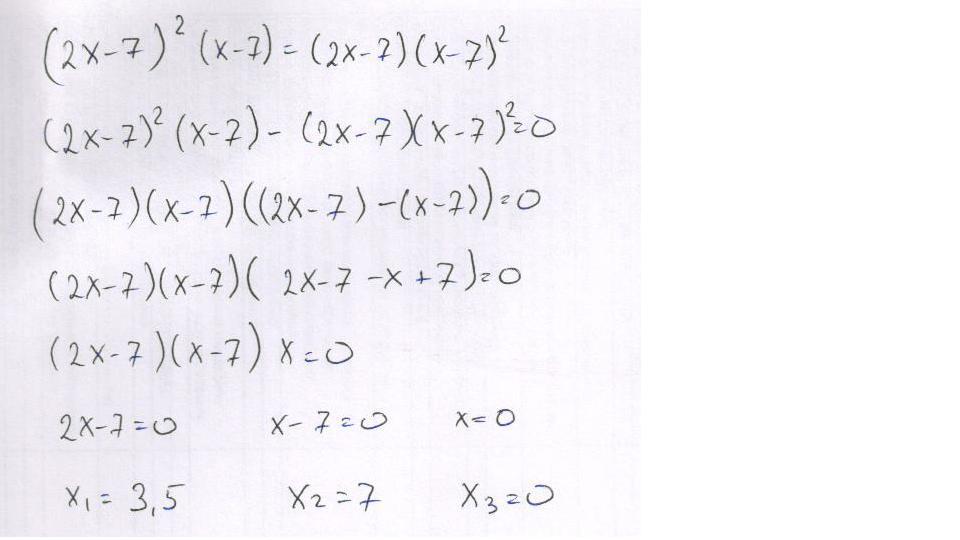 (2x-7)² (x-7) = (2x-7)(x-7)²
(2x-7)² (x-7) - (2x-7)(x-7)² = 0
(2x-7)(x-7)((2x-7)-(x-7)) = 0
(2x-7)(x-7)( 2x-7 -x +7) = 0
(2x-7)(x-7) x = 0
2x-7=0 x-7=0 x=0
x₁ = 3,5 x₂ = 7 x₃ = 0